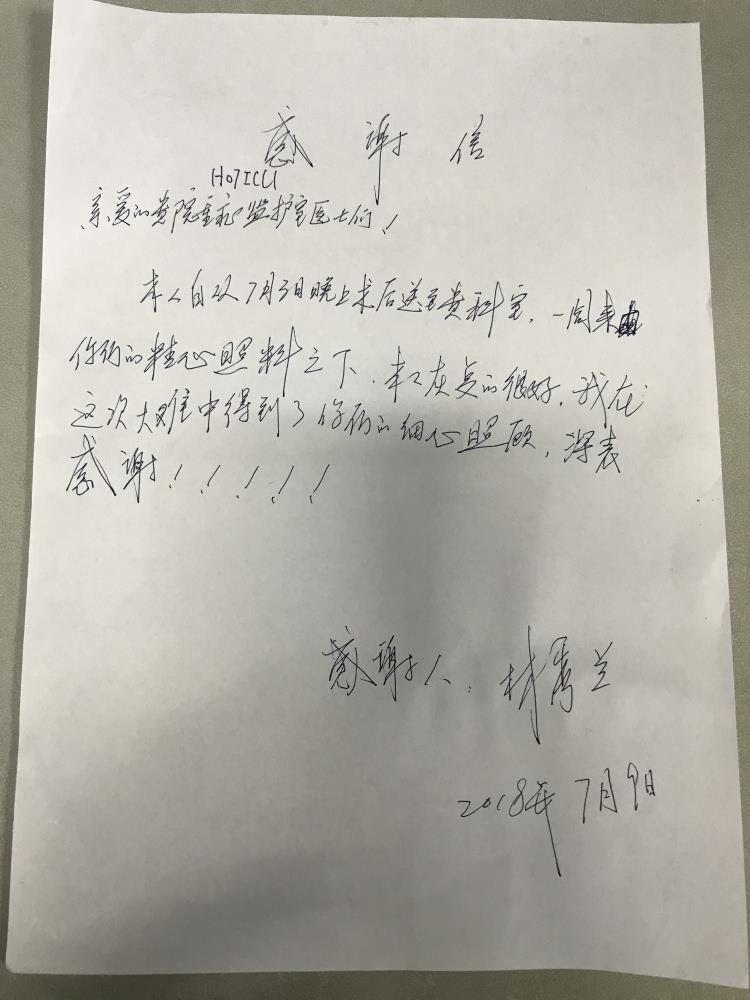 感谢信
H07ICU
亲爱的贵院重症监护室医士们！
本人自从7月3日晚上术后送至贵科室，一周来由
你们的精心照料之下，恢复的很好，我在
这次大难中得到了你们的细心照顾，深表
感谢！！！！！
感谢人：林秀兰
2018年7月9日